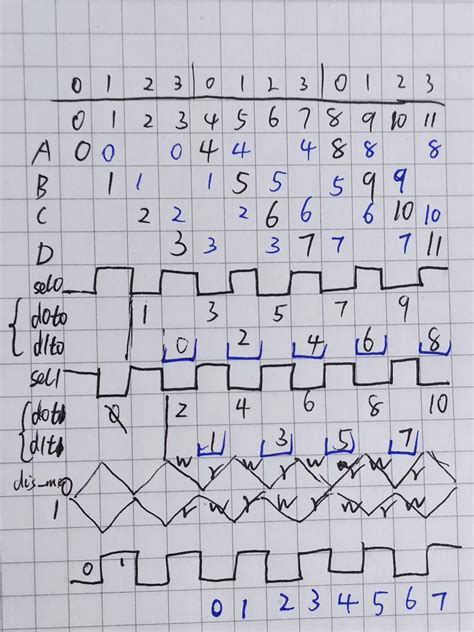 0 1 2 3 0 1 2 3 0 1 2 3
0 1 2 3 4 5 6 7 8 9 10 11
A 0 0 0 4 4 4 8 8 8
B 1 1 1 5 5 5 9 9
C 2 2 2 6 6 6 10 10
D 3 3 3 7 7 7 11
sel0
d0to 1 3 5 7 9
d1to 0 2 4 6 8
sel1
d0t 2 4 6 8 10
d1t 1 3 5 7
0 w r w r w r w r
1
0 1
0 1 2 3 4 5 6 7